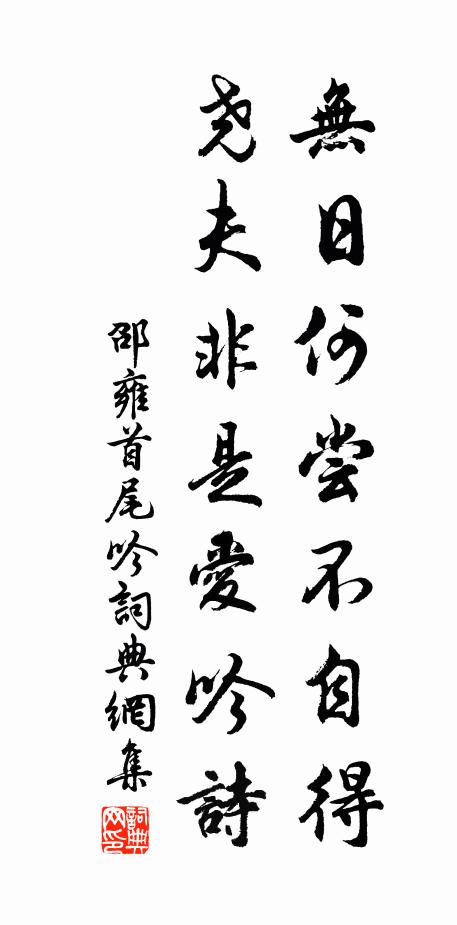 無日何尝不自得
尧夫非是愛吟詩
邵雍首尾吟詞典網集
詞典网印